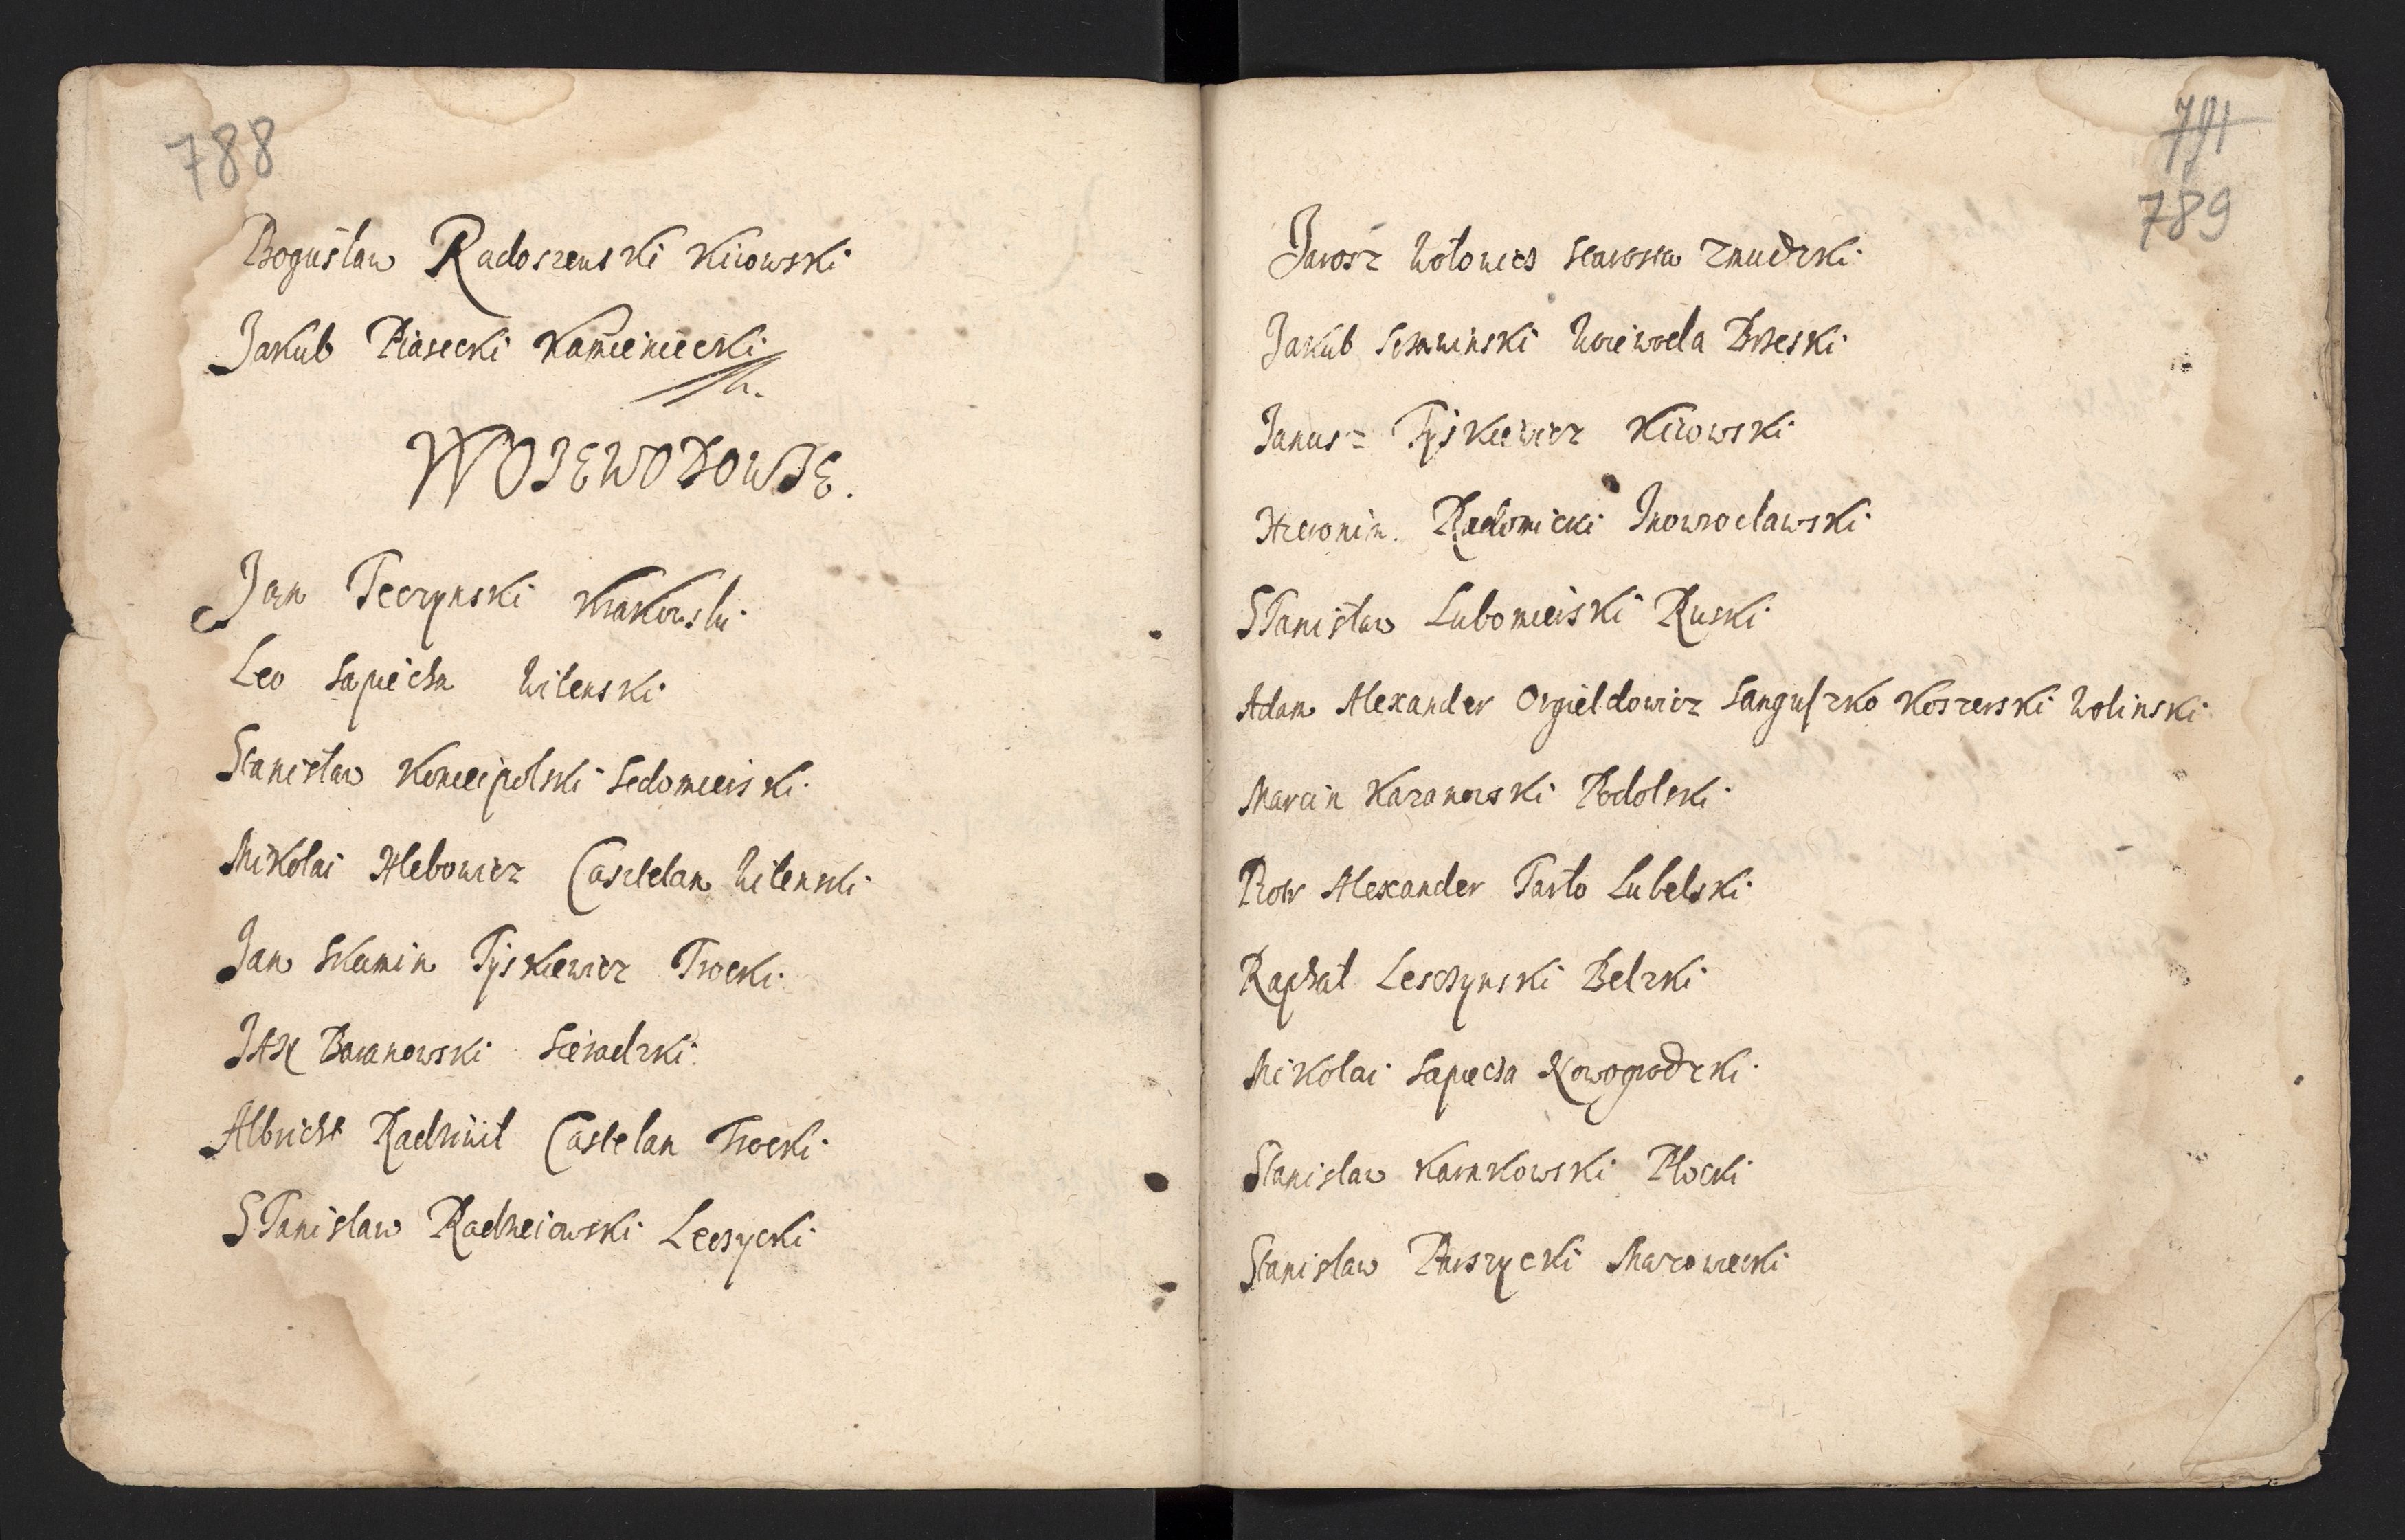 788
Bogusław Radoszewski Kiiowski
Jakub Piasecki Kamieniecki
WOJEWODOWIE.
Jan Teczynski Krakowski
Leo Sapieha Wilenski
Stanisław Koniecpolski Sedomierski
Mikołai Hlebowicz Castelan Wilenski
Jan Skumin Tyskiewicz Trocki
JAN Baranowski Sieradzki
Albricht Radziwił Castelan Trocki
STanislaw Radzieiowski Leczycki
791
789
Jarosz Wołowicz Starosta Zmudzki
Jakub Sczawinski Woiewoda Brzeski
Janusz Tyskiewicz Kiiowski
Hieronim. Radomicki Inowrocławski
STanisław Lubomierski Ruski
Adam Alexander Orgieldowicz Sanguszko Koszerski Wolinski
Marcin Kazanowski Podolski
Piotr Alexander Tarło Lubelski
Raphał Lesczynski Belzki
Mikolai Sapieha Nowogrodzki
Stanislaw Karnkowski Płocki
Stanislaw Warszycki Mazowiecki